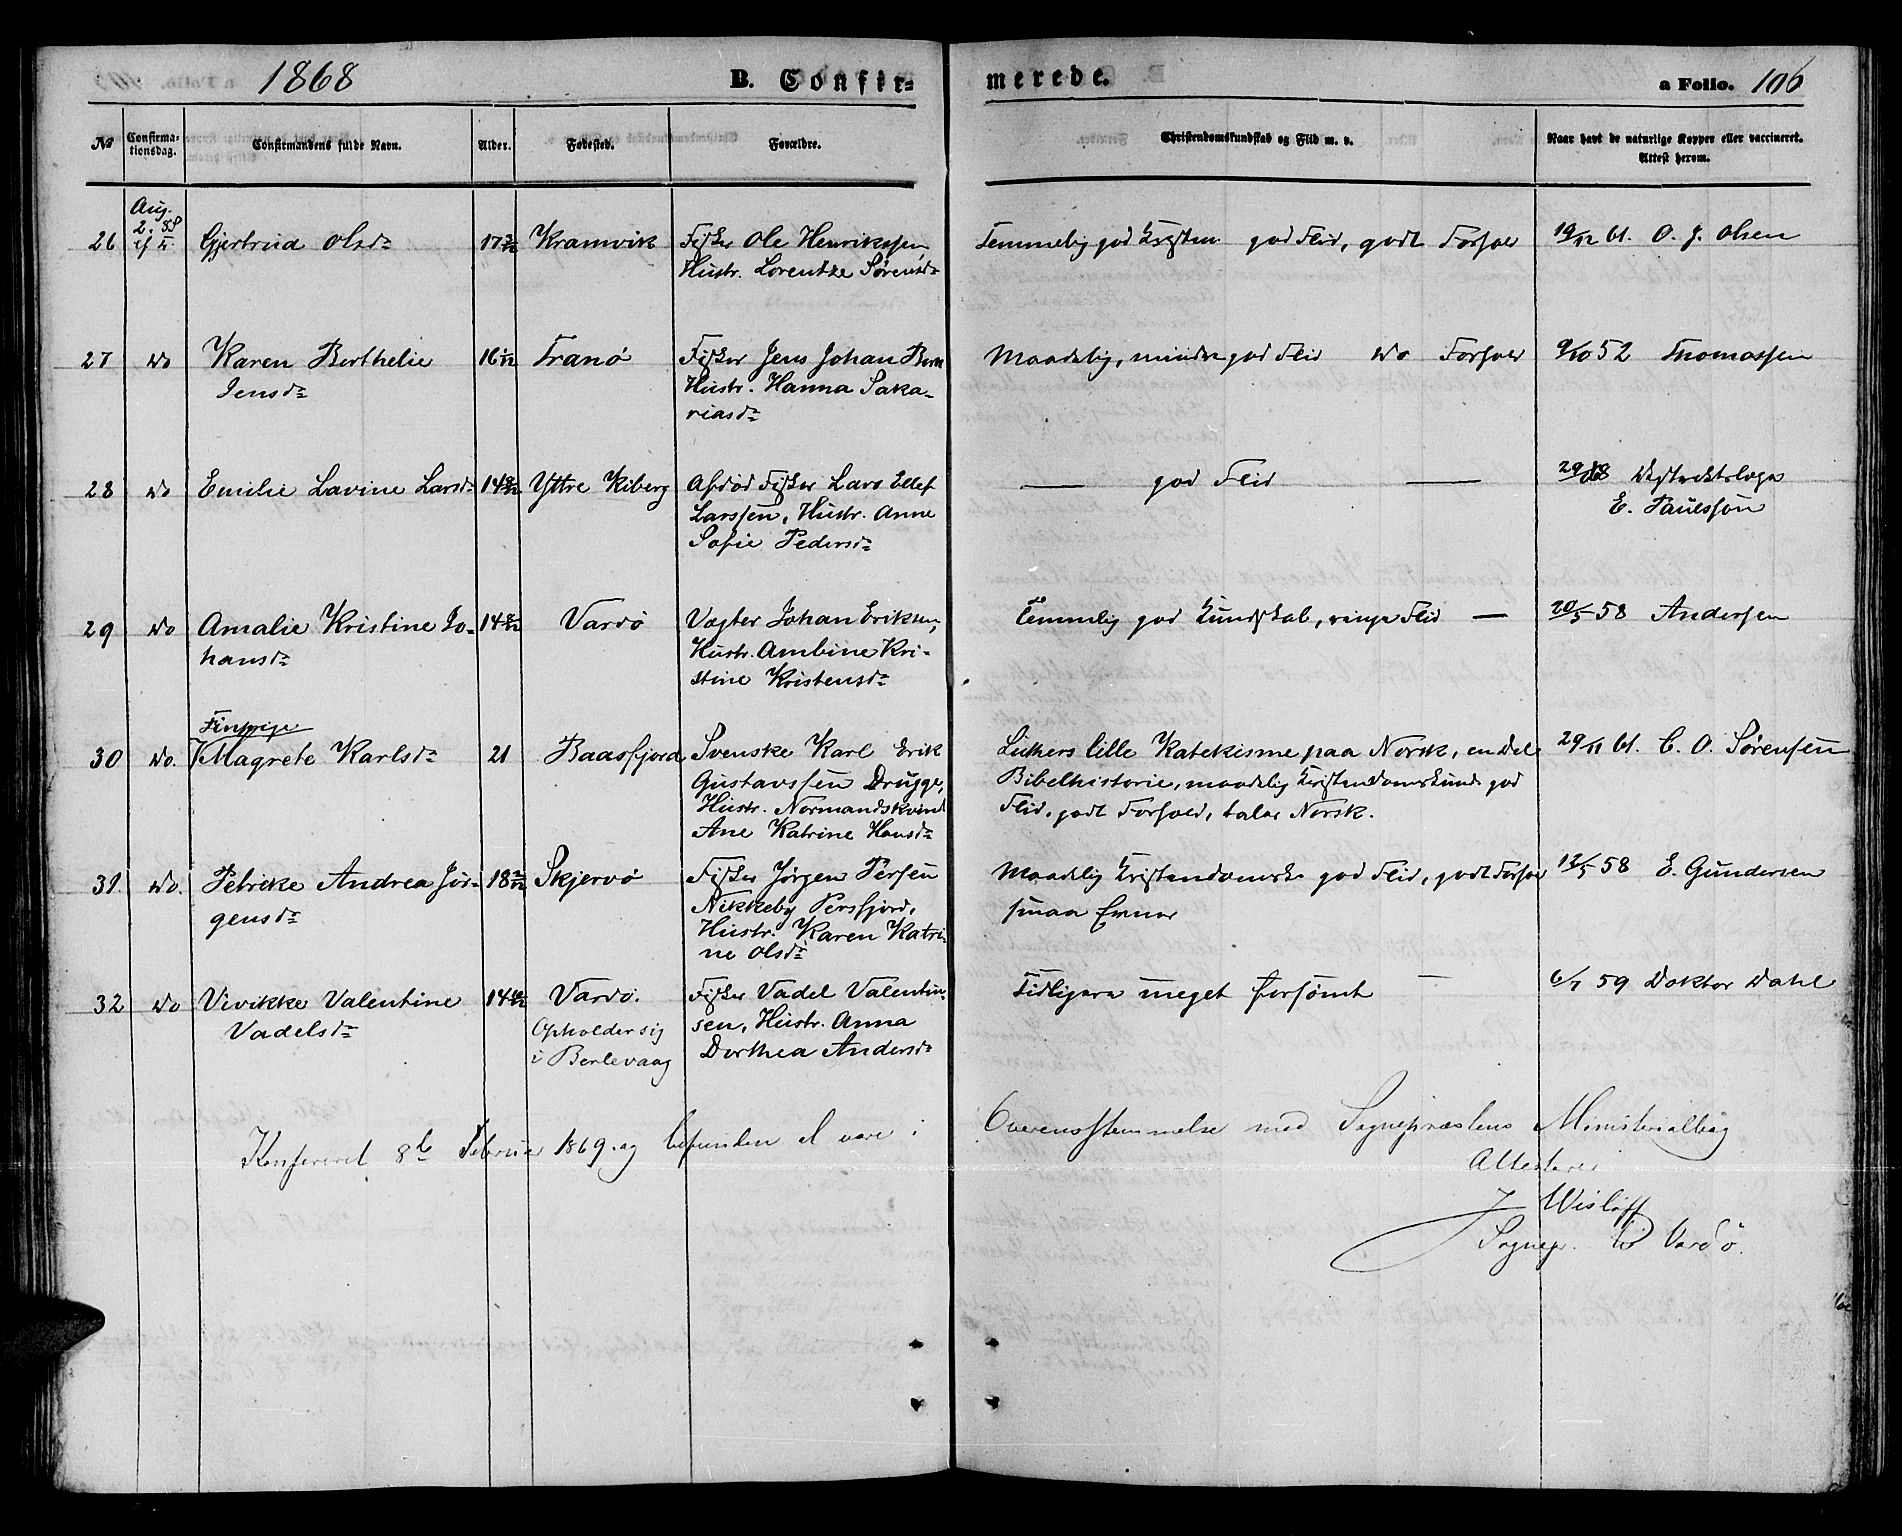 1868 B. Confir- merede. a Folio. 106
No Confirma-tionsdag. Confirmandens fulde Navn. Alder. Fødested. Forældre. Christendomskundskab og Flid m. v. Naar havt de naturlige Kopper eller vaccineret. Attest herom.
Aug. 2.
26 Gjertrud Olsd. 17 Kramvik Fisker Ole Henrikssen Temmelig god god Flid, godt Forhold 19/12 61. O. J. Olsen
Hustr. Lorentze Sørensd.
27 do Karen Berthelie 16 Tranö Fisker Jens Johan Maadelig, mindre god Flid do Forhold 9/10 52 Thomassen
Jensd. Hustr. Hanna Saka-
riasd.
28 do Emilie Lavine Larsd. 14 Yttre Kiberg Afdød Fisker Lars Ellef — god Flid — Distriktslæge
Larssen, Hustr. Anne E. Paulsson
Sofie Pedersd.
29 do Amalie Kristine Jo- 14 Vardö Vægter Johan Eriksen, Temmelig god Kundskab, ringe Flid — 20/5 58 Andersen
hansd. Hustr. Ambine Kri-
stine Kristensd.
Finpige
30 do. Magrete Karlsd. 21 Baasfjord Svenske Karl Erik Luthers lille Katekisme paa Norsk, en Del 29/11 61. C. O. Sørensen
Gustavssen Drugge, Bibelhistorie, maadelig Kristendomskund. god
Hustr. Normandskvind Flid, godt Forhold, taler Norsk.
Ane Katrine Hansd.
31 do. Petrike Andrea Jør- 18 Skjervö Fisker Jørgen Persen Maadelig Kristendomsk. god Flid, godt Forhold 12/5 58 E. Gundersen
gensd. Nikkeby Persfjord, smaa Evner
Hustr. Karen Katri-
ne Olsd.
32 do Vivikke Valentine 14 Vardö. Fisker Vadel Valentin- Tidligere meget forsömt — 6/7 59 Doktor Dahl
Vadelsd. Opholder sig sen, Hustr. Anna
i Berlevaag Dorthea Andersd.
Konfereret 8de Februar 1869 og befunden at være i Overensstemmelse med Sognepræstens Ministerialbog
Attesterer
J Wisløff
Sognepr. til Vardö.